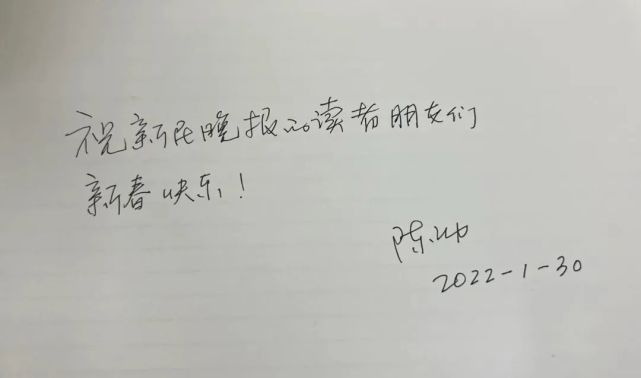 祝新民晚报的读者朋友们
新春快乐!
陈
2022-1-30